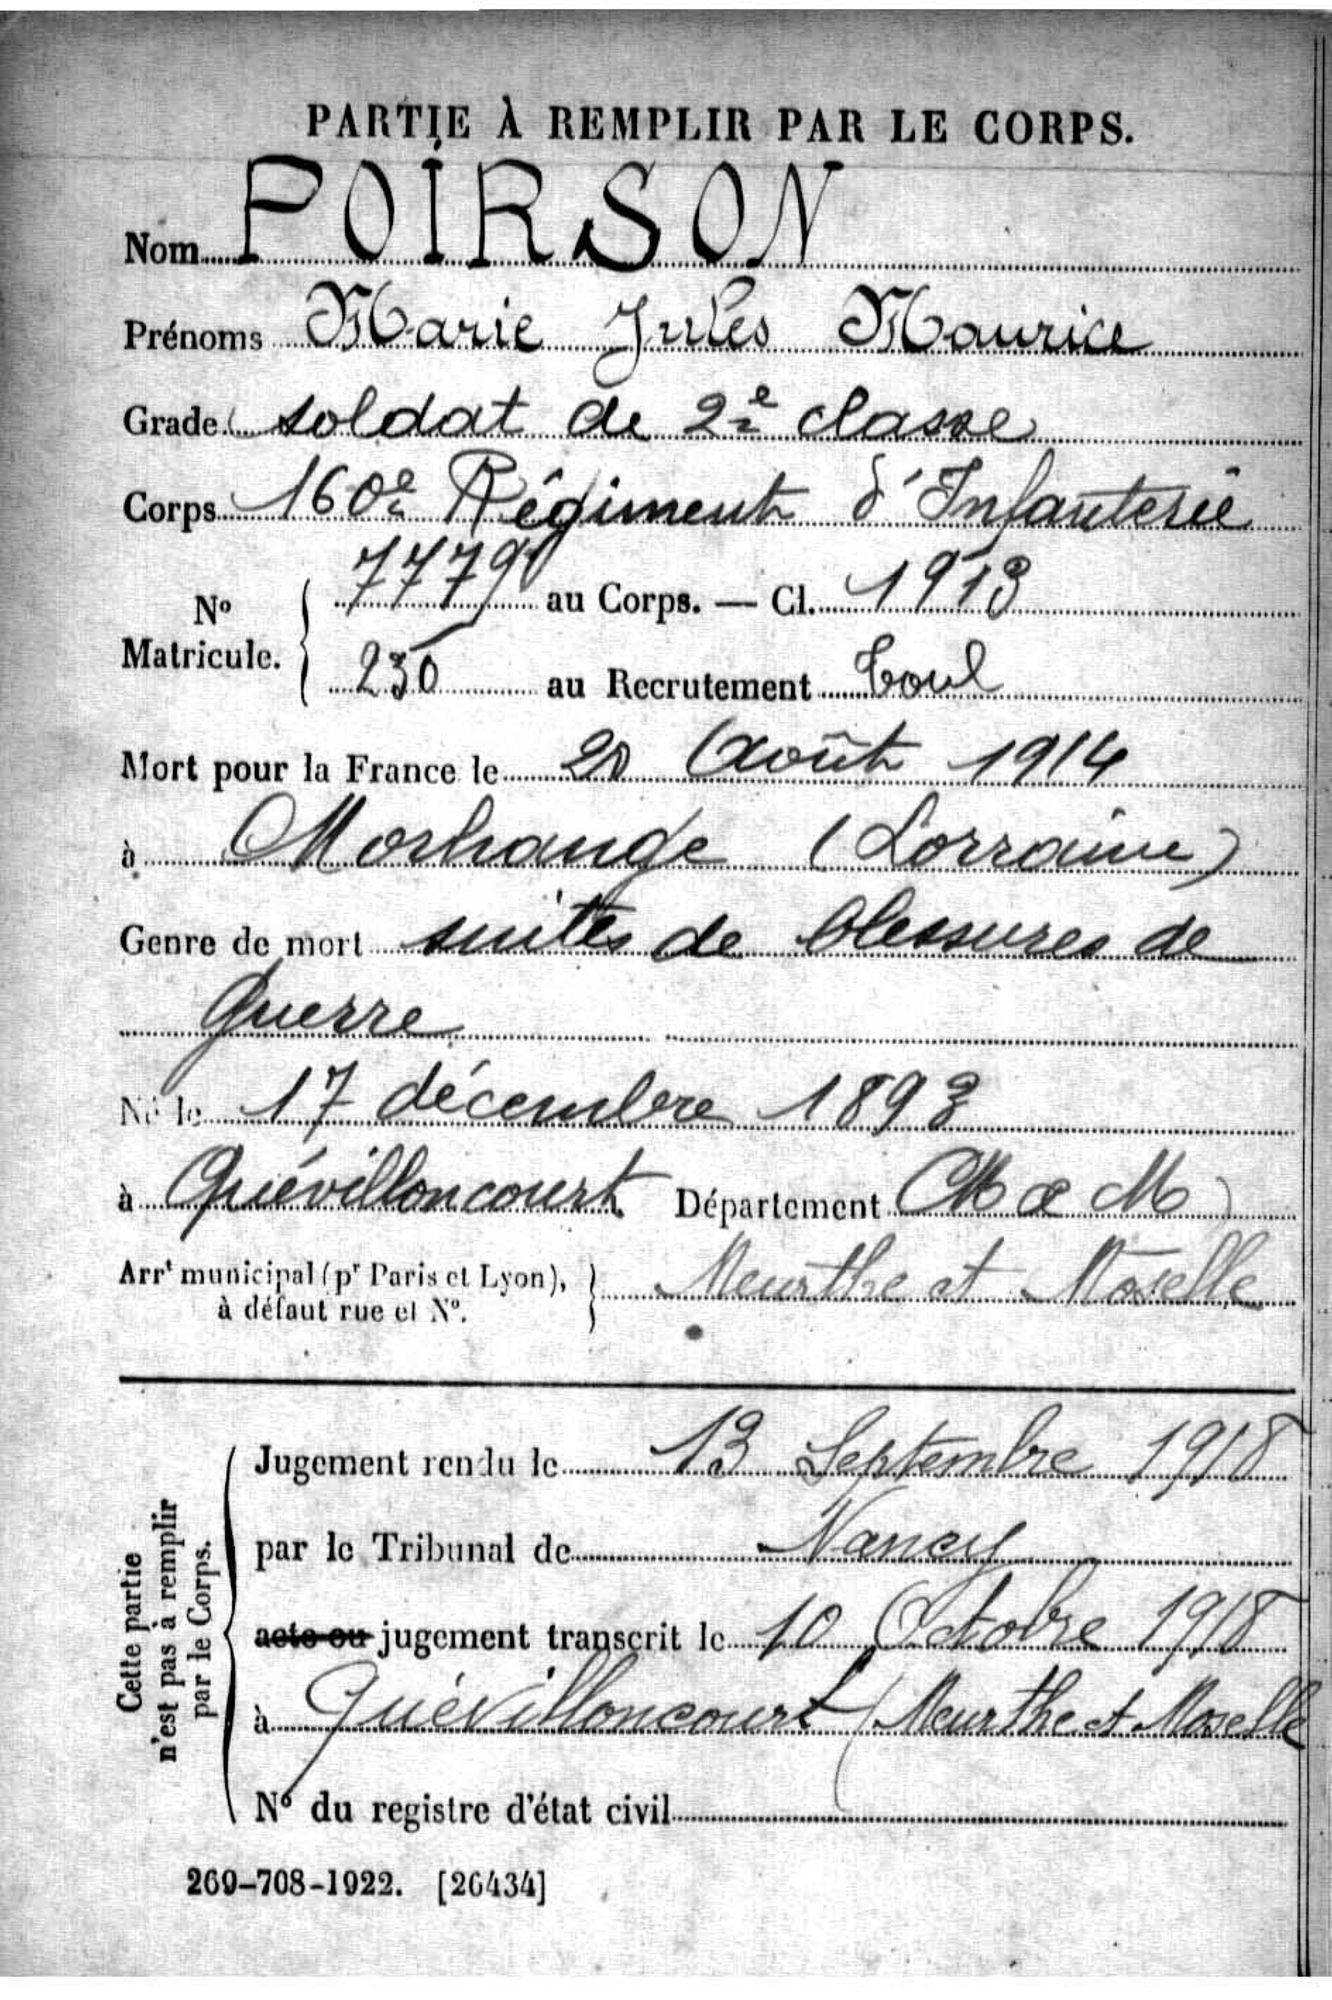 PARTIE À REMPLIR PAR LE CORPS.
Nom POIRSON
Prénoms Marie Jules Maurice
Grade soldat de 2e classe
Corps 160e Régiment d'Infanterie
No Matricule. 7779 au Corps. — Cl. 1913
230 au Recrutement Toul
Mort pour la France le 20 Août 1914
à Morhange (Lorraine)
Genre de mort suites de blessures de
Guerre
Né le 17 décembre 1893
à Quévilloncourt Département M et M
Arrt municipal (pr Paris et Lyon), à défaut rue et No. Meurthe et Moselle
Cette partie n'est pas à remplir par le Corps.
Jugement rendu le 13 Septembre 1918
par le Tribunal de Nancy
acte ou jugement transcrit le 10 Octobre 1918
à Quévilloncourt (Meurthe et Moselle
No du registre d'état civil
269-708-1922. [26434]